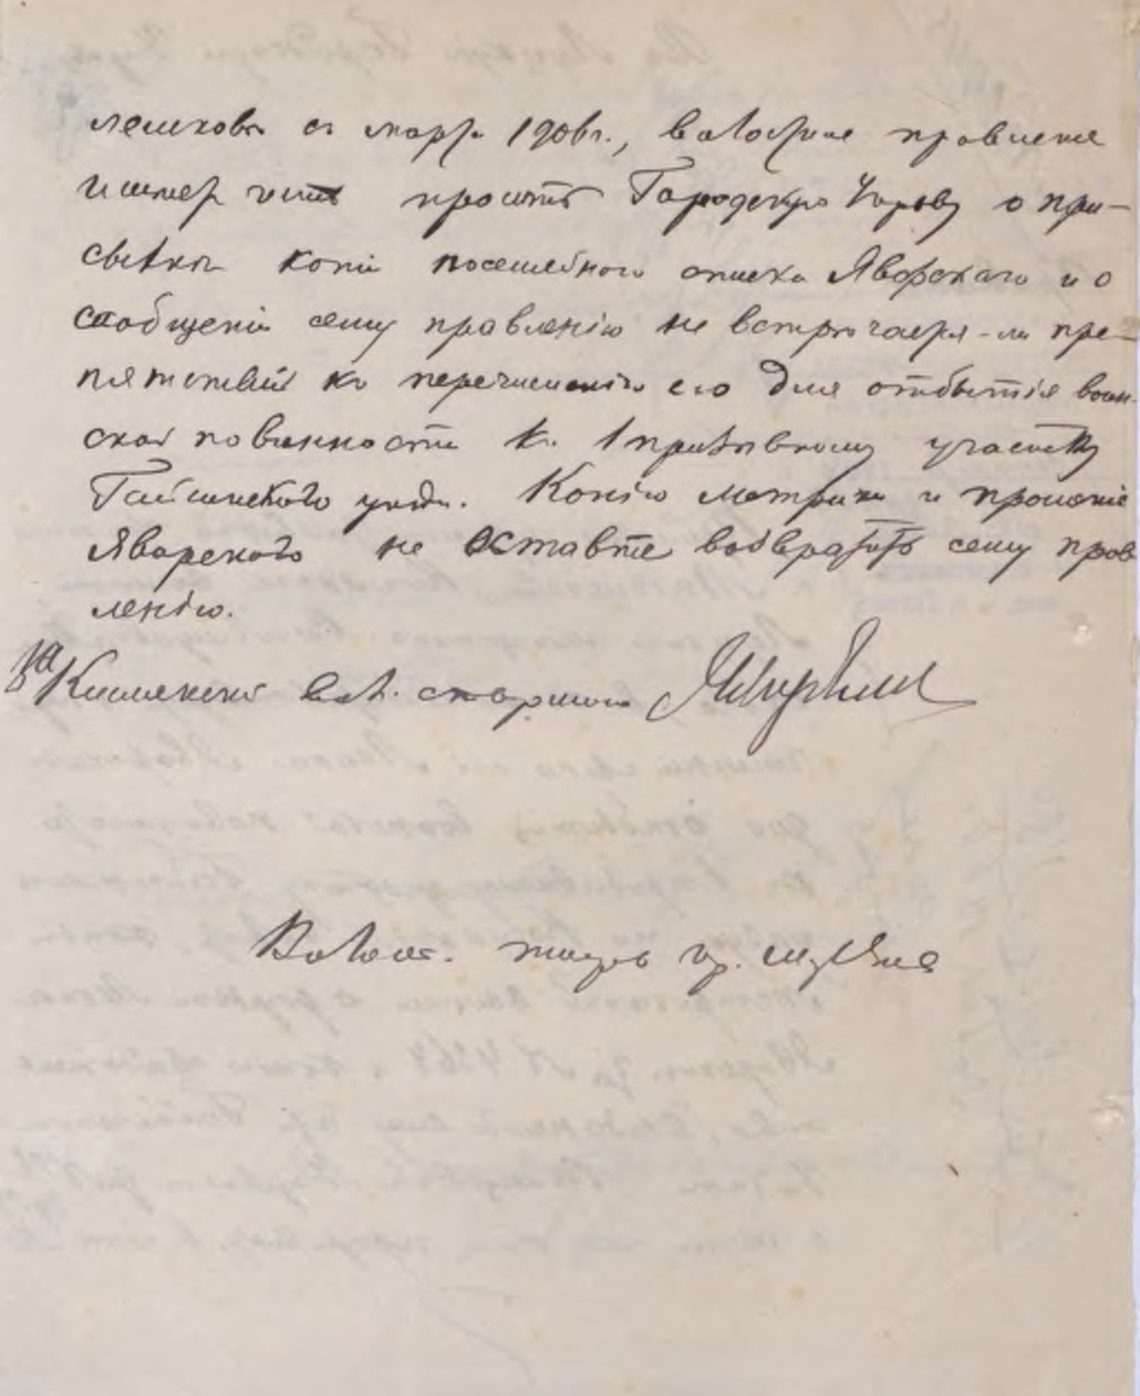 лешковъ съ марта 1906 г., волостное правленіе
имѣетъ честь просить Городскую Управу о при-
сылкѣ копіи посемейнаго списка Яворскаго и о
сообщеніи сему правленію не встрѣчается-ли пре-
пятствій къ перечисленію его для отбытія воин-
ской повинности къ 1 призывному участку
Гайсинскаго уѣзда. Копію метрики и прошеніе
Яворскаго не оставте возвратить сему прав
ленію.
За волъ. старшина
Волост. писарь